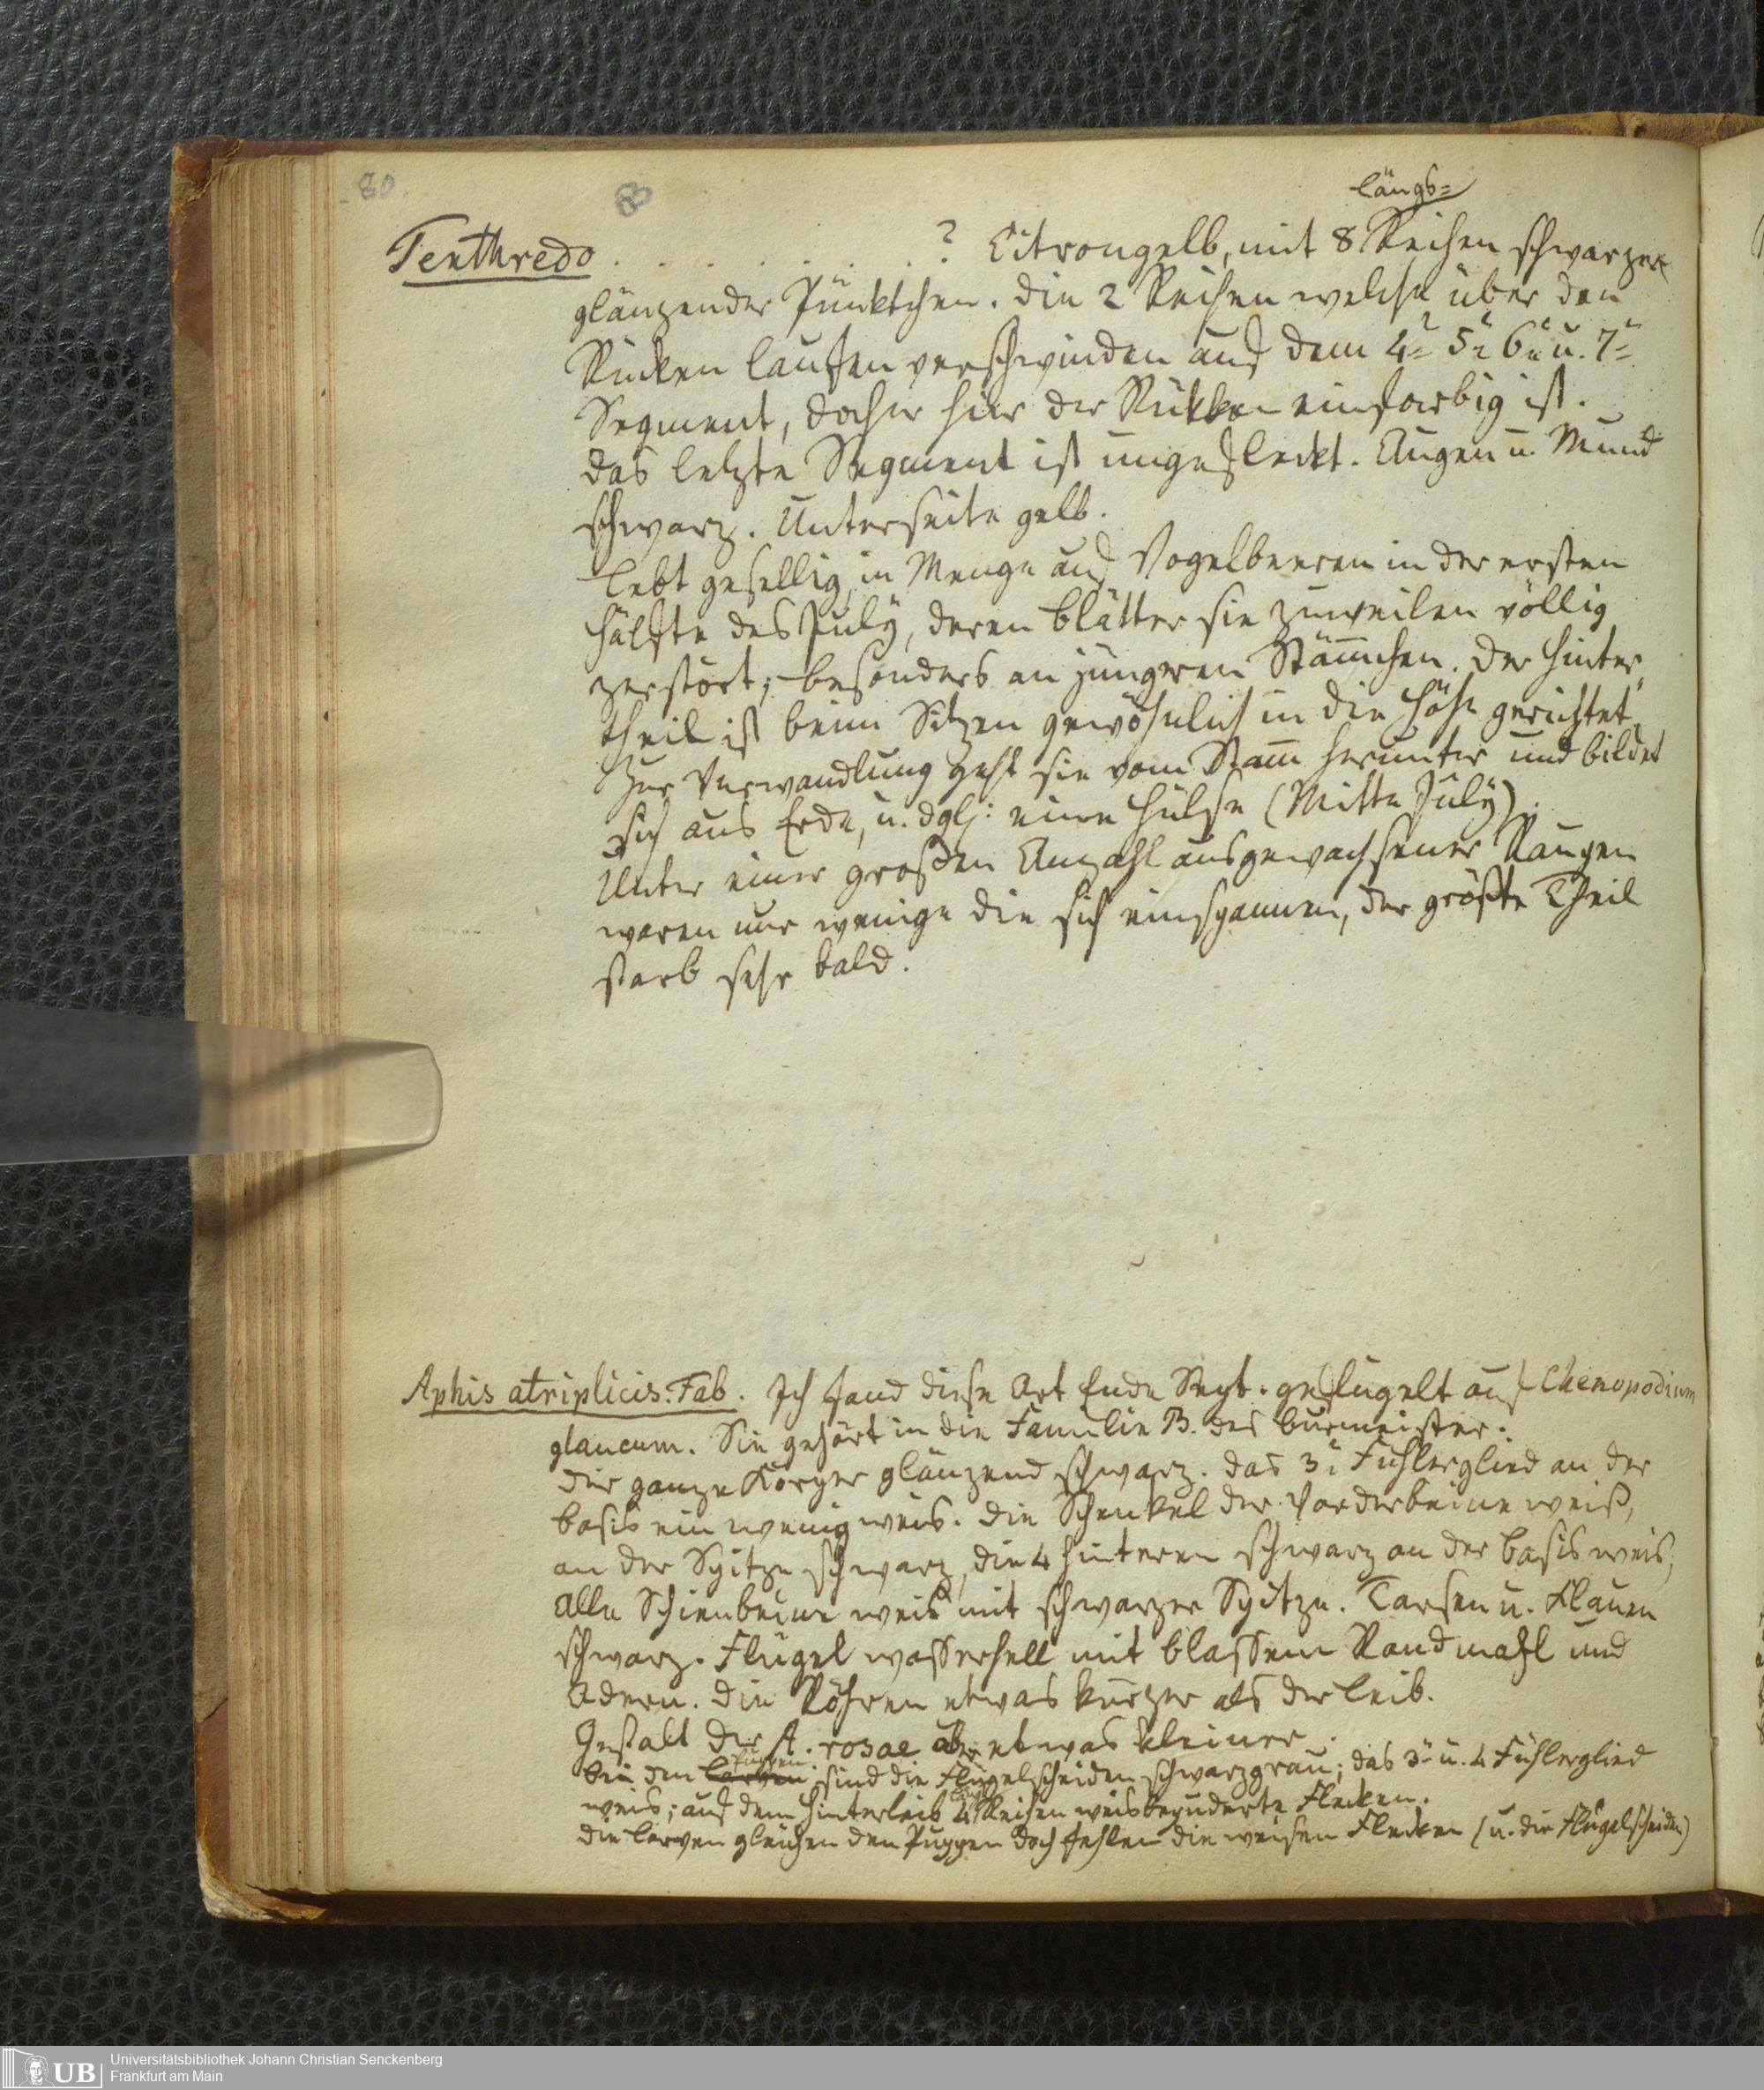 80
längs=
Tenthredo . . . . . . . ? Citrongelb, mit 8 Reihen schwarzer
glänzender Pünktchen. Die 2 Reihen welche über den
Rücken laufen verschwinden auf dem 4n 5n 6n u. 7n
Segment, daher hier der Rükken einfarbig ist.
das letzte Segment ist ungefleckt. Augen u. Mund
schwarz. Unterseite gelb.
Lebt gesellig, in Menge auf Vogelbeeren in der ersten
Hälfte des July, deren Blätter sie zuweilen völlig
zerstört; besonders an jüngeren Stämchen. Der Hinter„
theil ist beim Sitzen gewöhnlich in die Höhe gerichtet.
Zur Verwandlung geht sie vom Stam̄ herunter und bildet
sich aus Erde, u. dglj: eine Hülse (Mitte July).
Unter einer großen Anzahl ausgewachsener Raupen
waren nur wenige die sich einspannen, der größte Theil
starb sehr bald.
Aphis atriplicis. Fab. Ich fand diese Art Ende Sept. geflügelt auf Chenopodium
glaucum. Sie gehört in die Familie B. des Burmeister.
Der ganze Körper glänzend schwarz. Das 3e Fühlerglied an der
Basis ein wenig weis. Die Schenkel der Vorderbeine weiß,
an der Spitze schwarz, die 4 hinteren schwarz an der Basis weis;
Alle Schienbeine weis mit schwarzer Spitze. Tarsen u. Klauen
schwarz. Flügel wasserhell mit blassem Randmahl und
Adern. Die Röhren etwas kürzer als der Leib.
Gestalt der A. rosae aber etwas kleiner.
Puppen
Bei den Larven sind die Flügelscheiden schwarzgrau; das 3e u. 4 Fühlerglied
weis; auf dem Hinterleib 4 Reihen weisbepuderte Flecken.
Die Larven gleichen den Puppen doch fehlen die weisen Flecken (u. die Flügelscheiden)
Universitätsbibliothek Johann Christian Senckenberg
UB
Frankfurt am Main